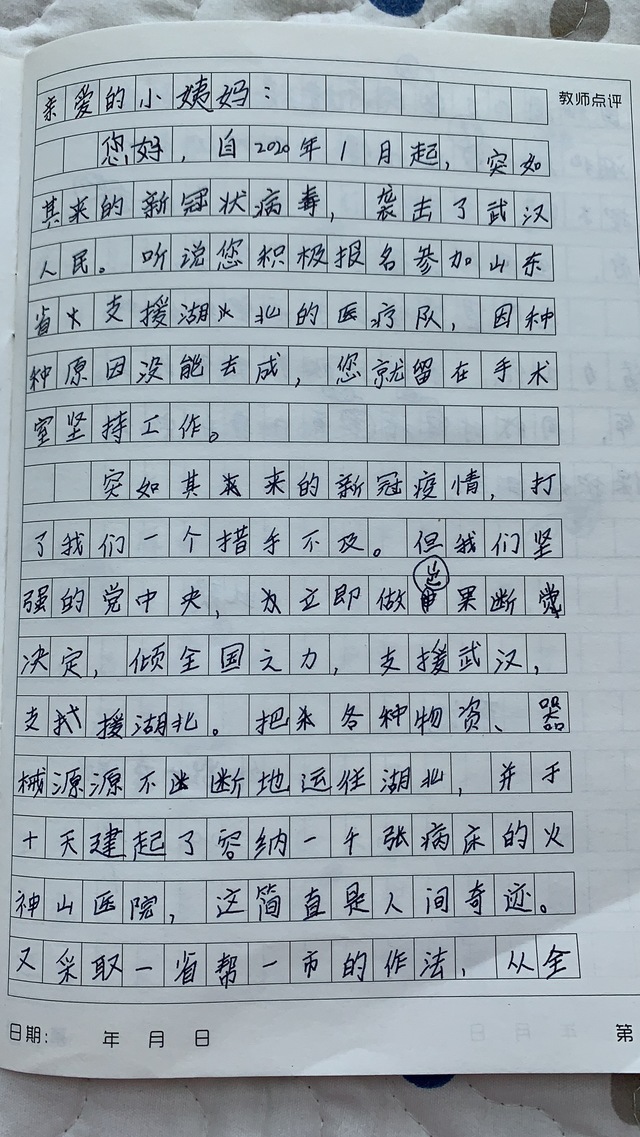 亲爱的小姨妈：
教师点评
您好，自2020年1月起，突如
其来的新冠状病毒，袭击了武汉
人民。听说您积极报名参加山东
省支援湖北的医疗队，因种
种原因没能去成，您就留在手术
室坚持工作。
突如其来的新冠疫情，打
了我们一个措手不及。但我们坚
强的党中央，立即做出果断
决定，倾全国之力，支援武汉，
支援湖北。把各种物资、器
械源源不断地运往湖北，并于
十天建起了容纳一千张病床的火
神山医院，这简直是人间奇迹。
又采取一省帮一市的作法，从全
日期： 年 月 日
第